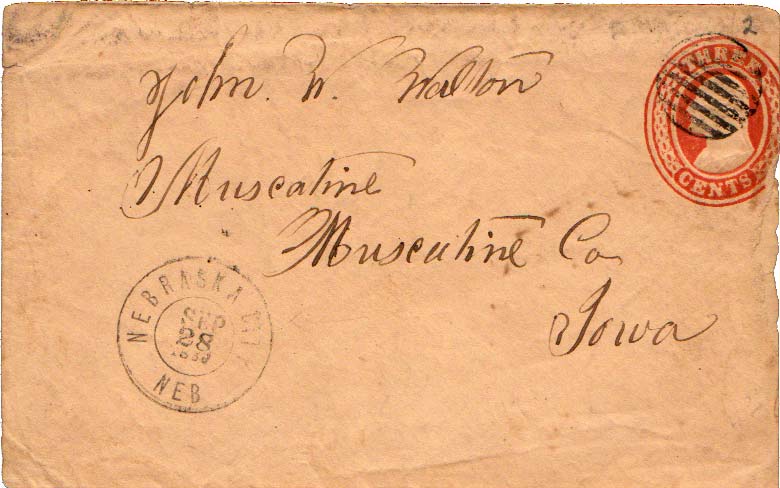 2
THREE
CENTS
John. W. Walton
Muscatine
Muscatine Co
Iowa
NEBRASKA CITY
SEP
28
NEB